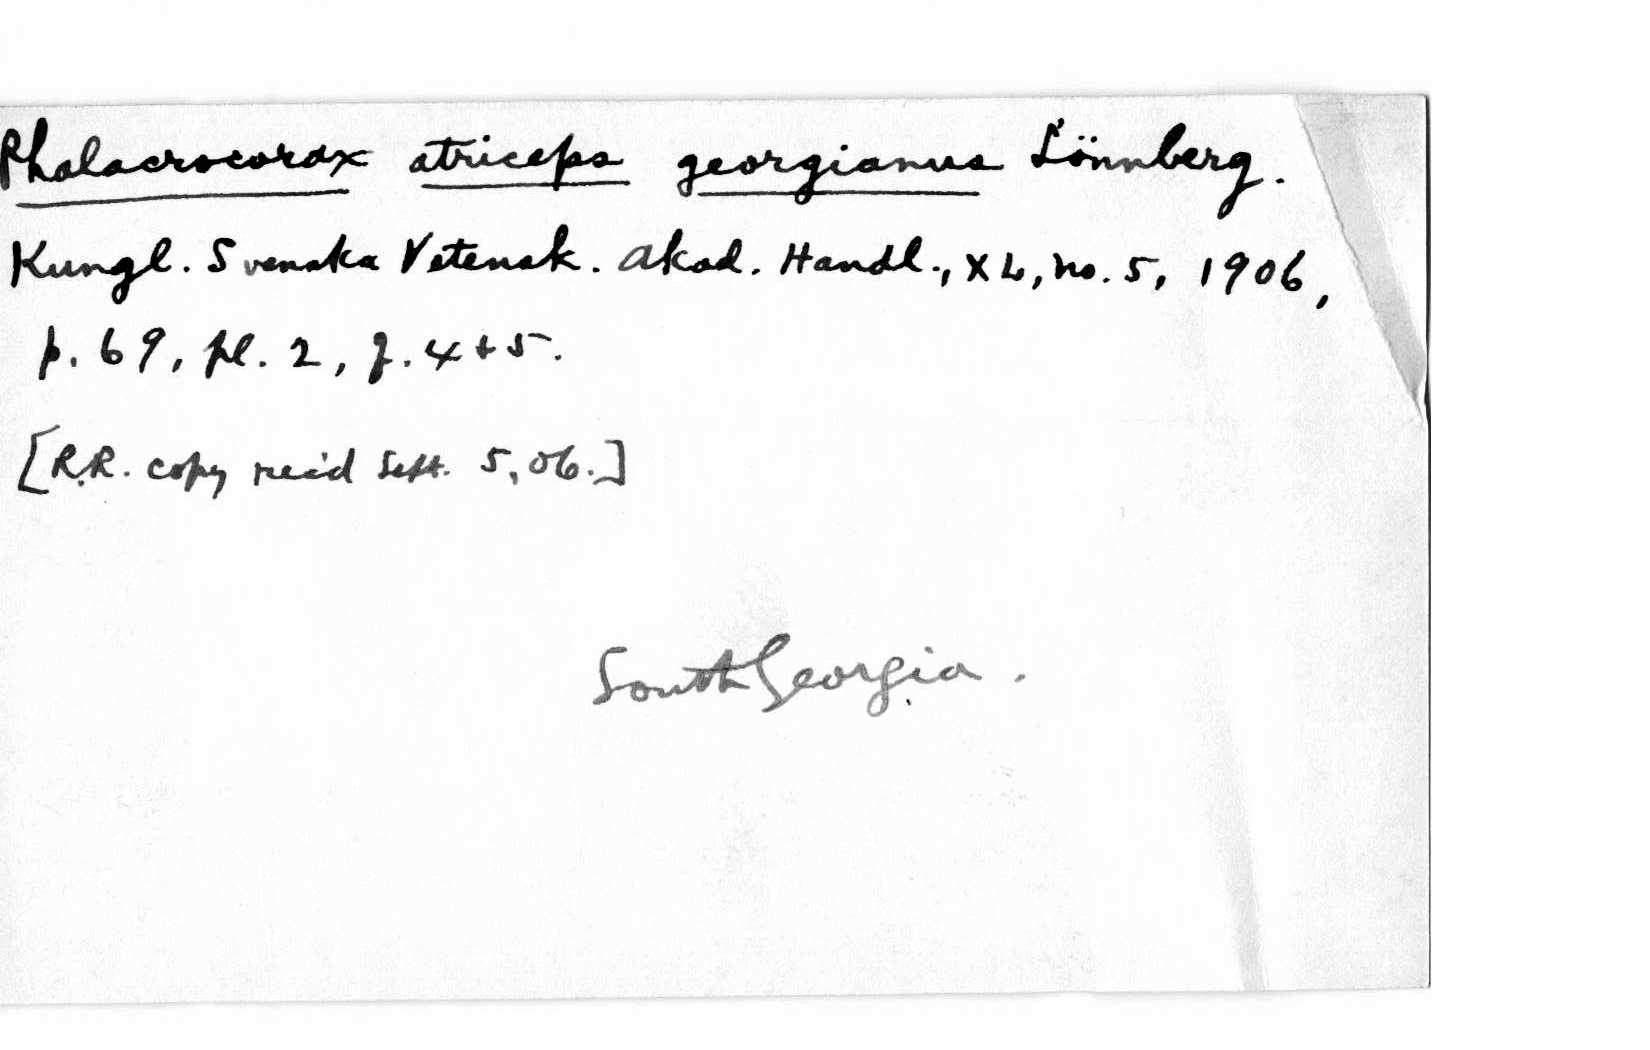 Phalacrocorax atriceps georgianus Lönnberg.
Kungl. Svenska Vetensk. Akad. Handl., XL, no. 5, 1906,
p. 69, pl. 2, f. 4 + 5.
[R.R. copy rec'd Sept. 5, 06.]
South Georgia.